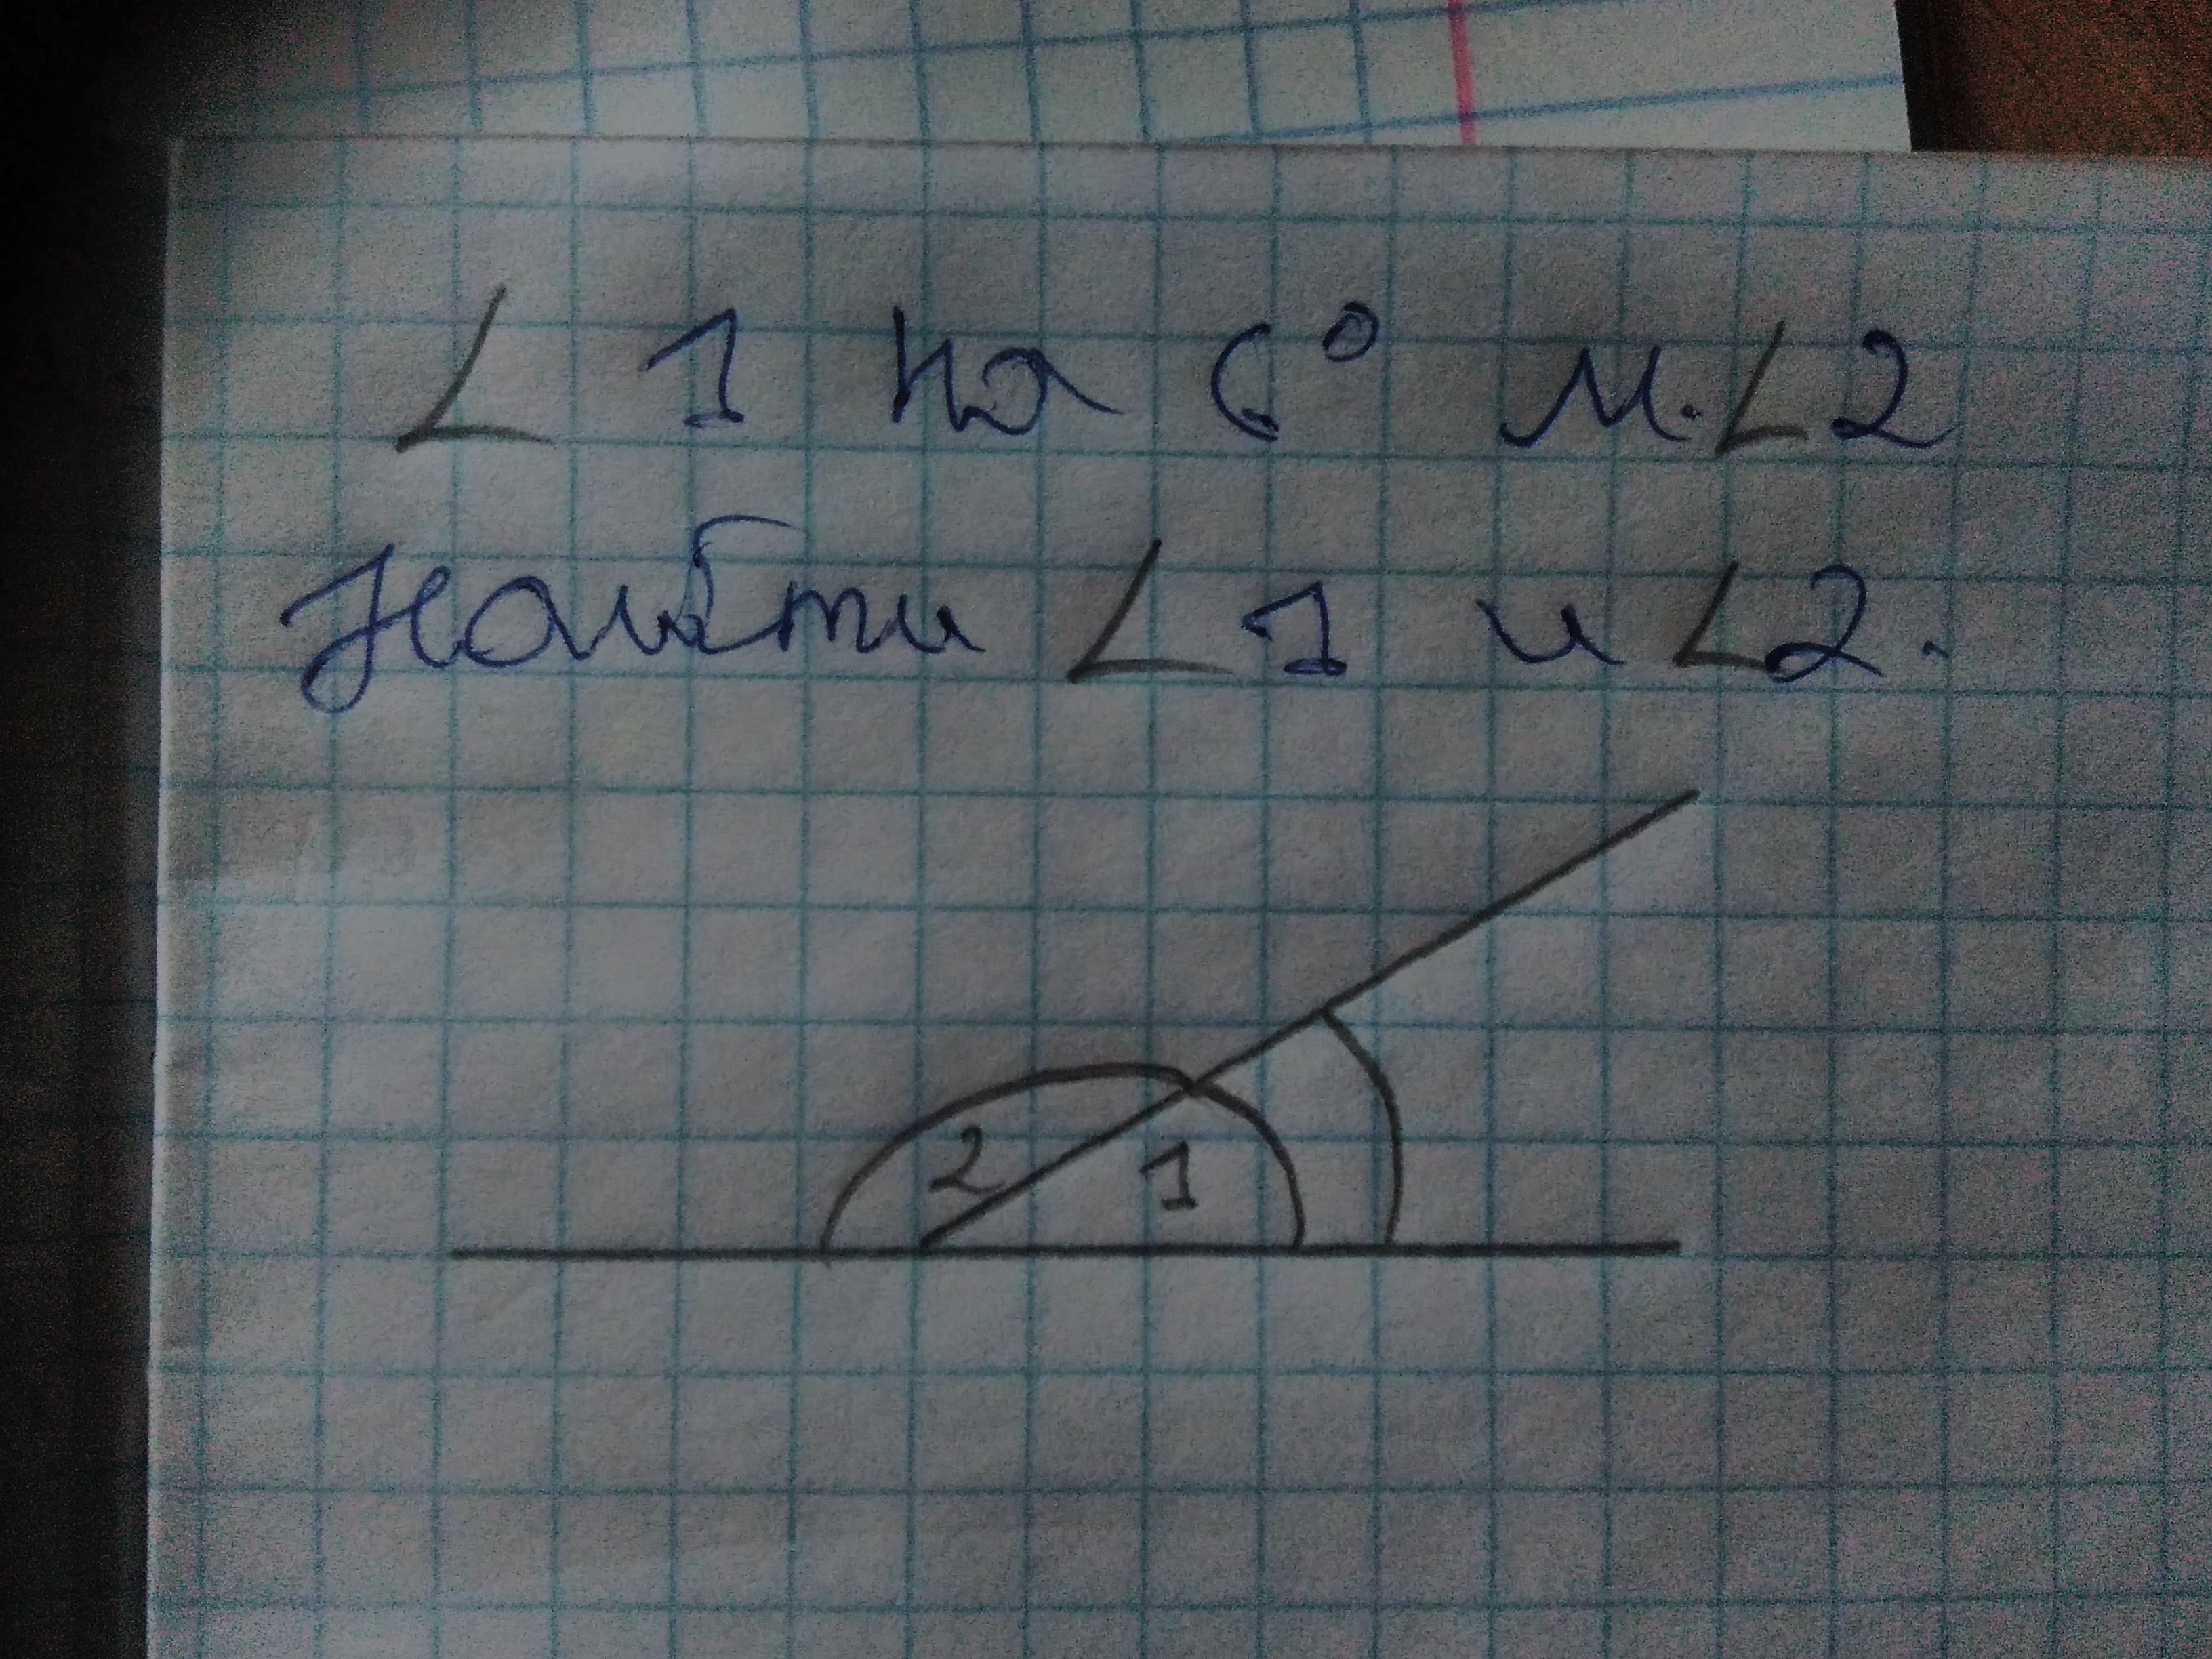 ∠ 1 на 6° м. ∠2
Найти ∠ 1 и ∠2.
2 1